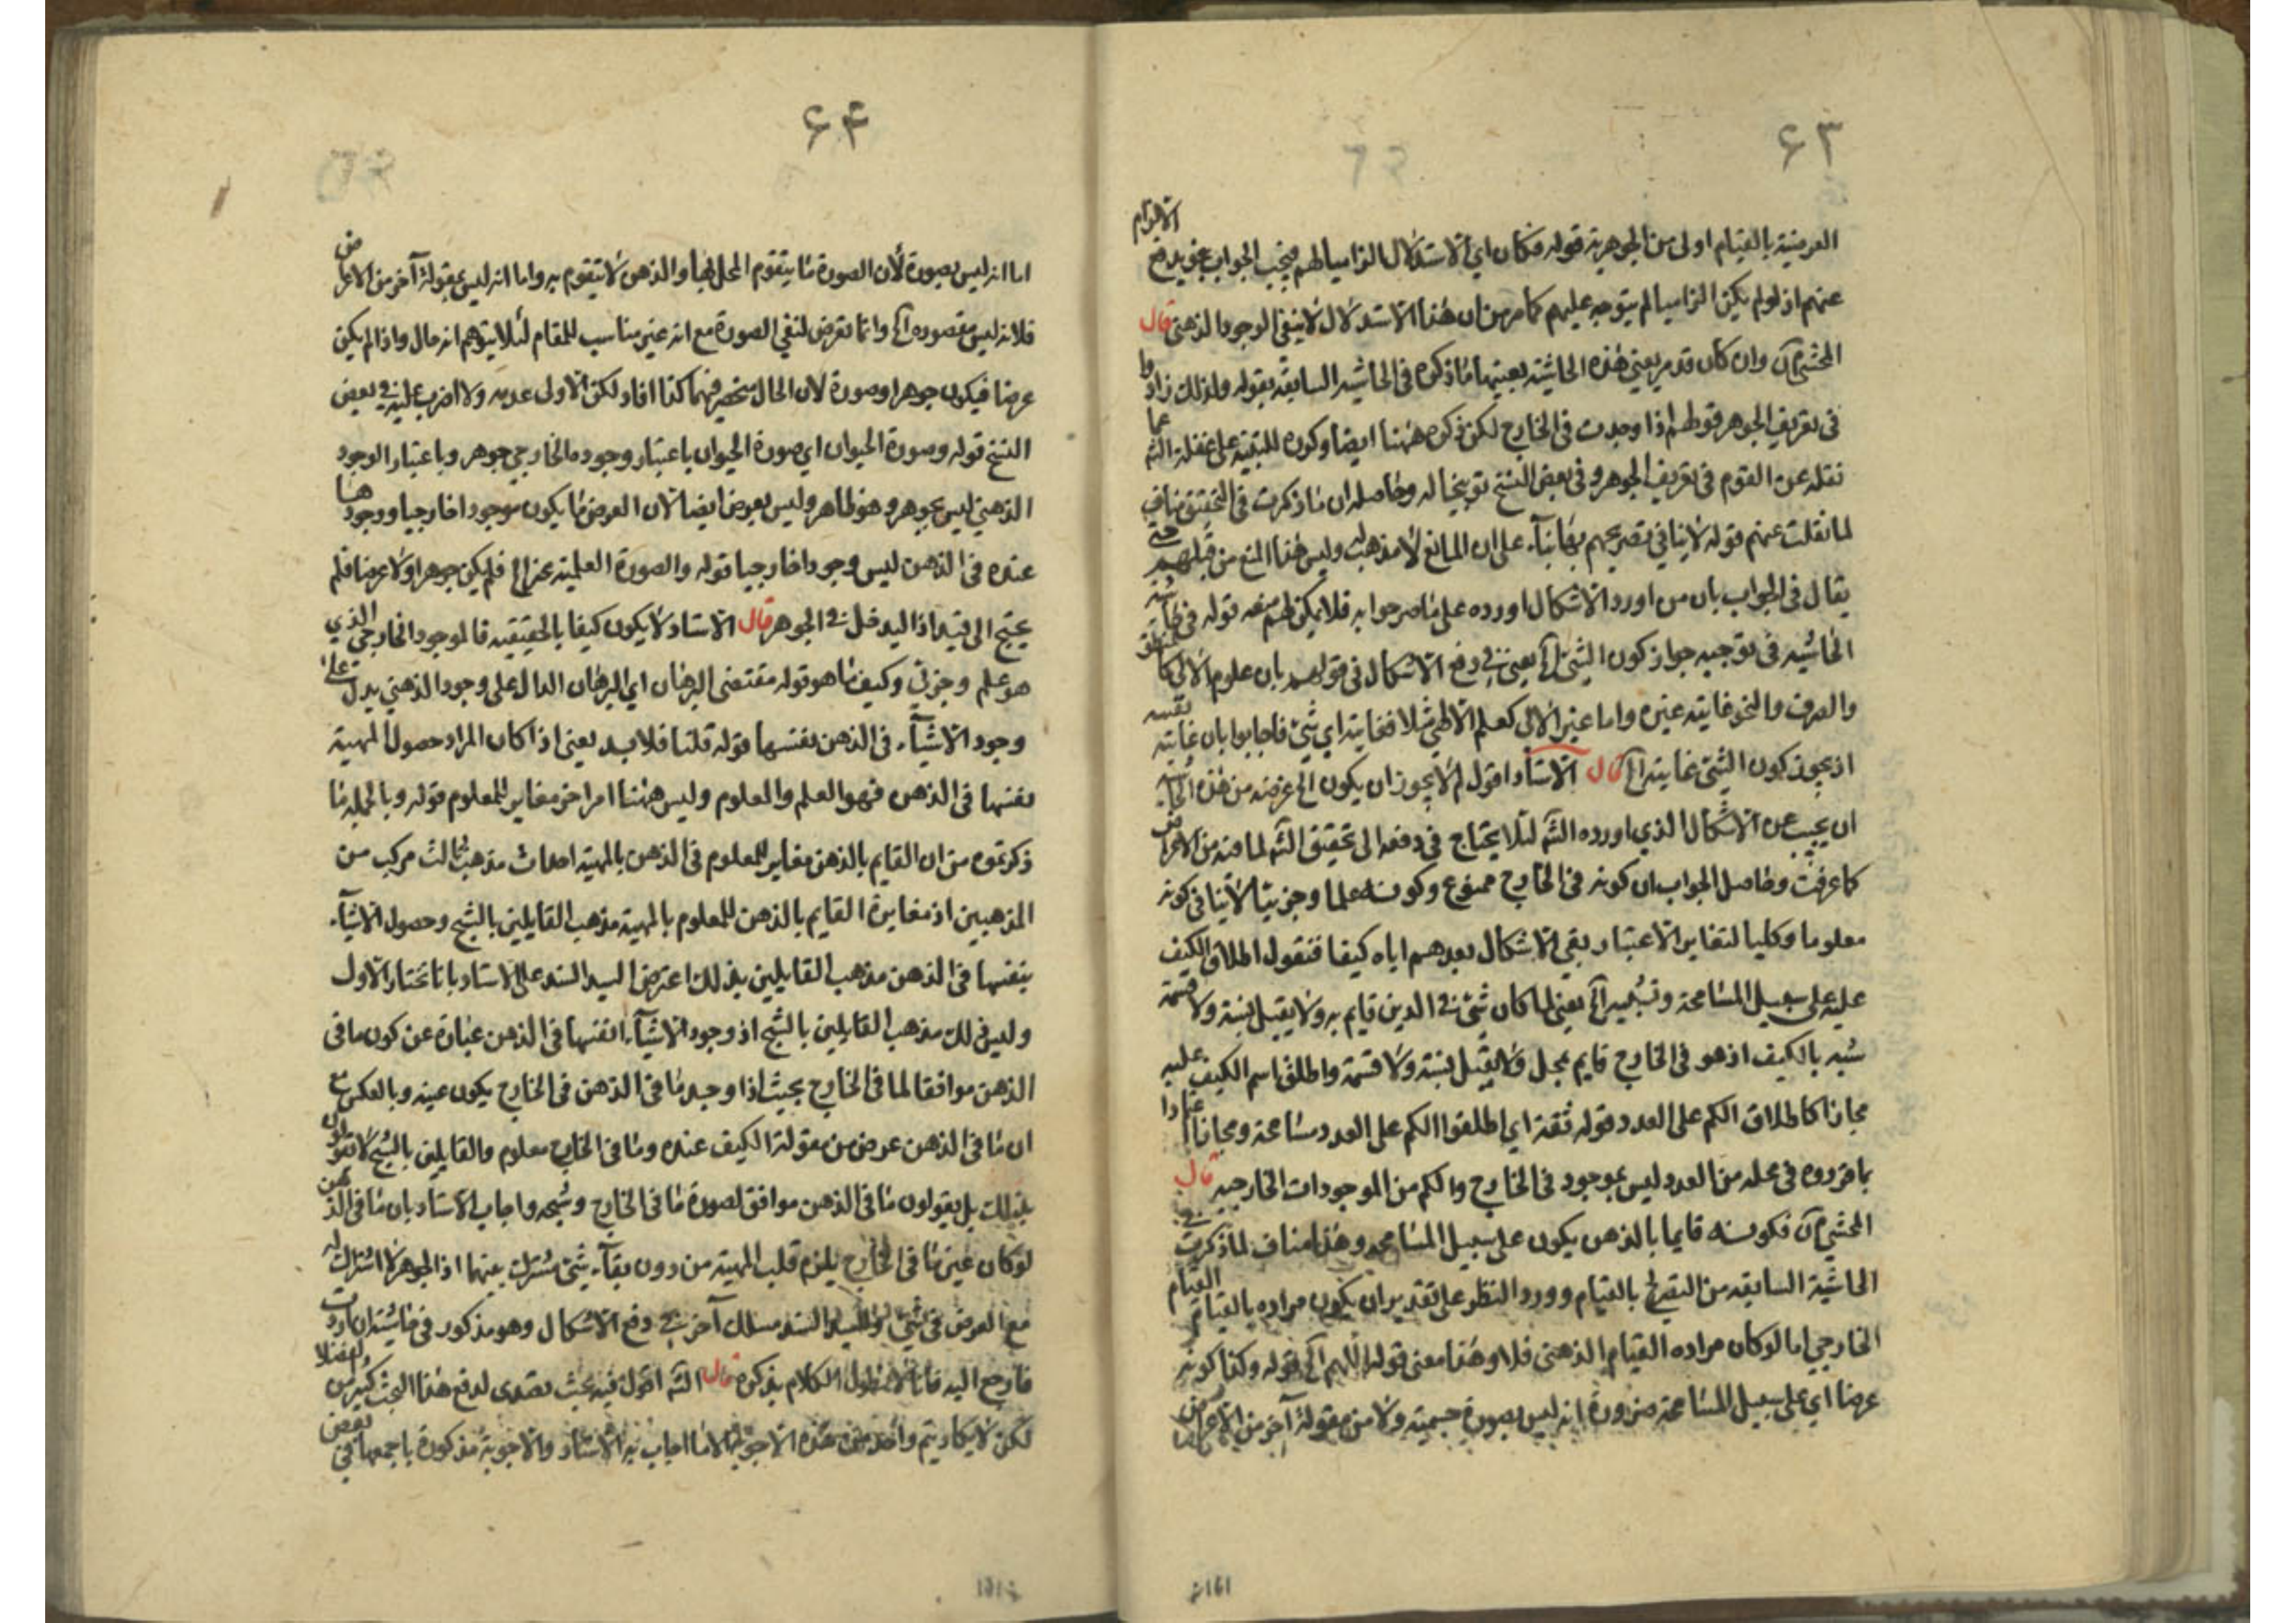 ۶۳
العرضية بالقيام اولى من الجوهرية قوله فكان اي الاستدلال الزاميا لهم فيجب الجواب بحيث يدفع الالزام
عنهم اذ لو لم يكن الزاميا لم يتوجه عليهم كما مر من ان هذا الاستدلال لا ينفى الوجود الذهني قال
المحشي آه وان كان قد مر يعني هذه الحاشية بعينها ما ذكره فى الحاشية السابقة بقوله ولذلك زادوا
فى تعريف الجوهر قولهم اذا وجدت فى الخارج لكن ذكره ههنا ايضا وكونه للتنبيه على غفلة الش عما
نقله عن القوم فى تعريف الجوهر وفى بعض النسخ توبيخا له وحاصله ان ما ذكرت فى التحقيق مناف
لما نقلت عنهم قوله لا ينافي تصريحهم ثانيا على ان المانع لا مذهب له وليس هذا المنع من قبلهم حتى
يقال فى الجواب بان من اورد الاشكال اورده على ما صرحوا به فلا يمكن لهم منعه قوله فى
الحاشية فى توجيه جواز كون الشئ آه يعني في دفع الاشكال فى قولهم بان علوم الالى كالمنطق
والصرف والنحو غايته غيره واما غير الالى كعلم الالهي مثلا فغايته اي شئ فاجابوا بان غايته نفسه
اذ يجوز كون الشئ غاية آه قال الاستاد اقول لم لا يجوز ان يكون آه غرضه من هذه الحاشية
ان يجيب عن الاشكال الذي اورده الش لئلا يحتاج فى دفعه الى تحقيق الش لما فيه من الاعتراض
كما عرفت وحاصل الجواب ان كونه فى الخارج ممنوع وكونه علما وجزئيا لا ينافى كونه
معلوما وكليا لتغاير الاعتبار بقي الاشكال بعدهم اياه كيفا فنقول اطلاق الكيف
عليه على سبيل المسامحة وتشبيه آه يعني لما كان شئ في الذهن قايم به ولا يقبل نسبة ولا قسمة
شبه بالكيف اذ هو فى الخارج قايم بمحل ولا يقبل نسبة ولا قسمة واطلق اسم الكيف عليه
مجازا كاطلاق الكم على العدد قوله ثقة اي اطلقوا الكم على العدد مسامحة ومجازا اعتمادا
بما قرروه فى محله من العدد ليس بموجود فى الخارج والكم من الموجودات الخارجيه قال
المحشي آه فكونه قايما بالذهن يكون على سبيل المسامحه وهذا مناف لما ذكرت في
الحاشية السابقه من التصريح بالقيام وورود النظر على تقدير ان يكون مراده بالقيام القيام
الخارجي اما لو كان مراده القيام الذهنى فلا وهذا معنى قوله اللهم آه قوله وكذا كونه
عرضا اي على سبيل المسامحة ضرورة انه ليس بصورة جسمية ولا من مقولة آخر من الاعراض
۱۶۱
۶۴
اما انه ليس بصورة لأن الصورة ما يتقوم المحل بها والذهن لا يتقوم به واما انه ليس بمقولة آخر من الاعراض
فلانه ليس مقصوده آه وانما تعرض لنفي الصورة مع انه غير مناسب للمقام لئلا يتوهم انه حال واذا لم يكن
عرضا فيكون جوهرا وصورة لان الحال منحصر فيهما كذا افاد لكن الاولى عدمه ولا اضرب عليه في بعض
النسخ قوله وصورة الحيوان اي صورة الحيوان باعتبار وجوده الخارجي جوهر وباعتبار الوجود
الذهني ليس بجوهر وهو ظاهر وليس بعرض ايضا لان العرض ما يكون موجودا خارجيا ووجودها
عنده فى الذهن ليس وجودا خارجيا قوله والصورة العلمية بمخرج فلم يكن جوهرا ولا عرضا فلم
يحتج الى قيد اذا ليدخل في الجوهر قال الاستاد لا يكون كيفا بالحقيقيه فالموجود الخارجي الذي
هو علم وجزئي وكيف ما هو قوله مقتضى البرهان اي البرهان الدال على وجود الذهني يدل على
وجود الاشيآء فى الذهن بنفسها قوله قلنا فلابد يعنى اذا كان المراد حصول المهية
بنفسها فى الذهن فهو العلم والمعلوم وليس ههنا امر اخر مغاير للمعلوم قوله وبالجمله ما
ذكرتموه من ان القايم بالذهن مغاير للمعلوم فى الذهن بالمهية احداث مذهب ثالث مركب من
المذهبين اذ مغايرة القايم بالذهن للمعلوم بالمهية مذهب القايلين بالشبح وحصول الاشيآء
بنفسها فى الذهن مذهب القايلين بذلك اعترض السيد السند على الاستاد بانا نختار الاول
وليس ذلك مذهب القايلين بالشبح اذ وجود الاشيآء انفسها فى الذهن عبارة عن كون ما فى
الذهن موافقا لما فى الخارج بحيث اذا وجد ما فى الذهن فى الخارج يكون عينه وبالعكس مع
ان ما فى الذهن عرض من مقولة الكيف عنده وما فى الخارج معلوم والقايلين بالشبح لا يقولون
بذلك بل يقولون ما فى الذهن موافق لصورة ما فى الخارج وشبحه واجاب الاستاد بان ما فى الذهن
لو كان عين ما فى الخارج يلزم قلب المهية من دون بقآء شئ مشترك بينهما اذ الجوهر لا اشتراك له
مع العرض فى شئ وللسيد السند مسلك آخر في دفع الاشكال وهو مذكور فى حاشيته ان اردت
فارجع اليه فانا لا نطول الكلام بذكره قال الش اقول فيه بحث تصدى لدفع هذا البحث كثير من الفضلا
لكن لا يكاد يتم واحد من هذه الاجوبة الا ما اجاب به الاستاد والاجوبة مذكورة باجمعها فى بعض
۱۶۱